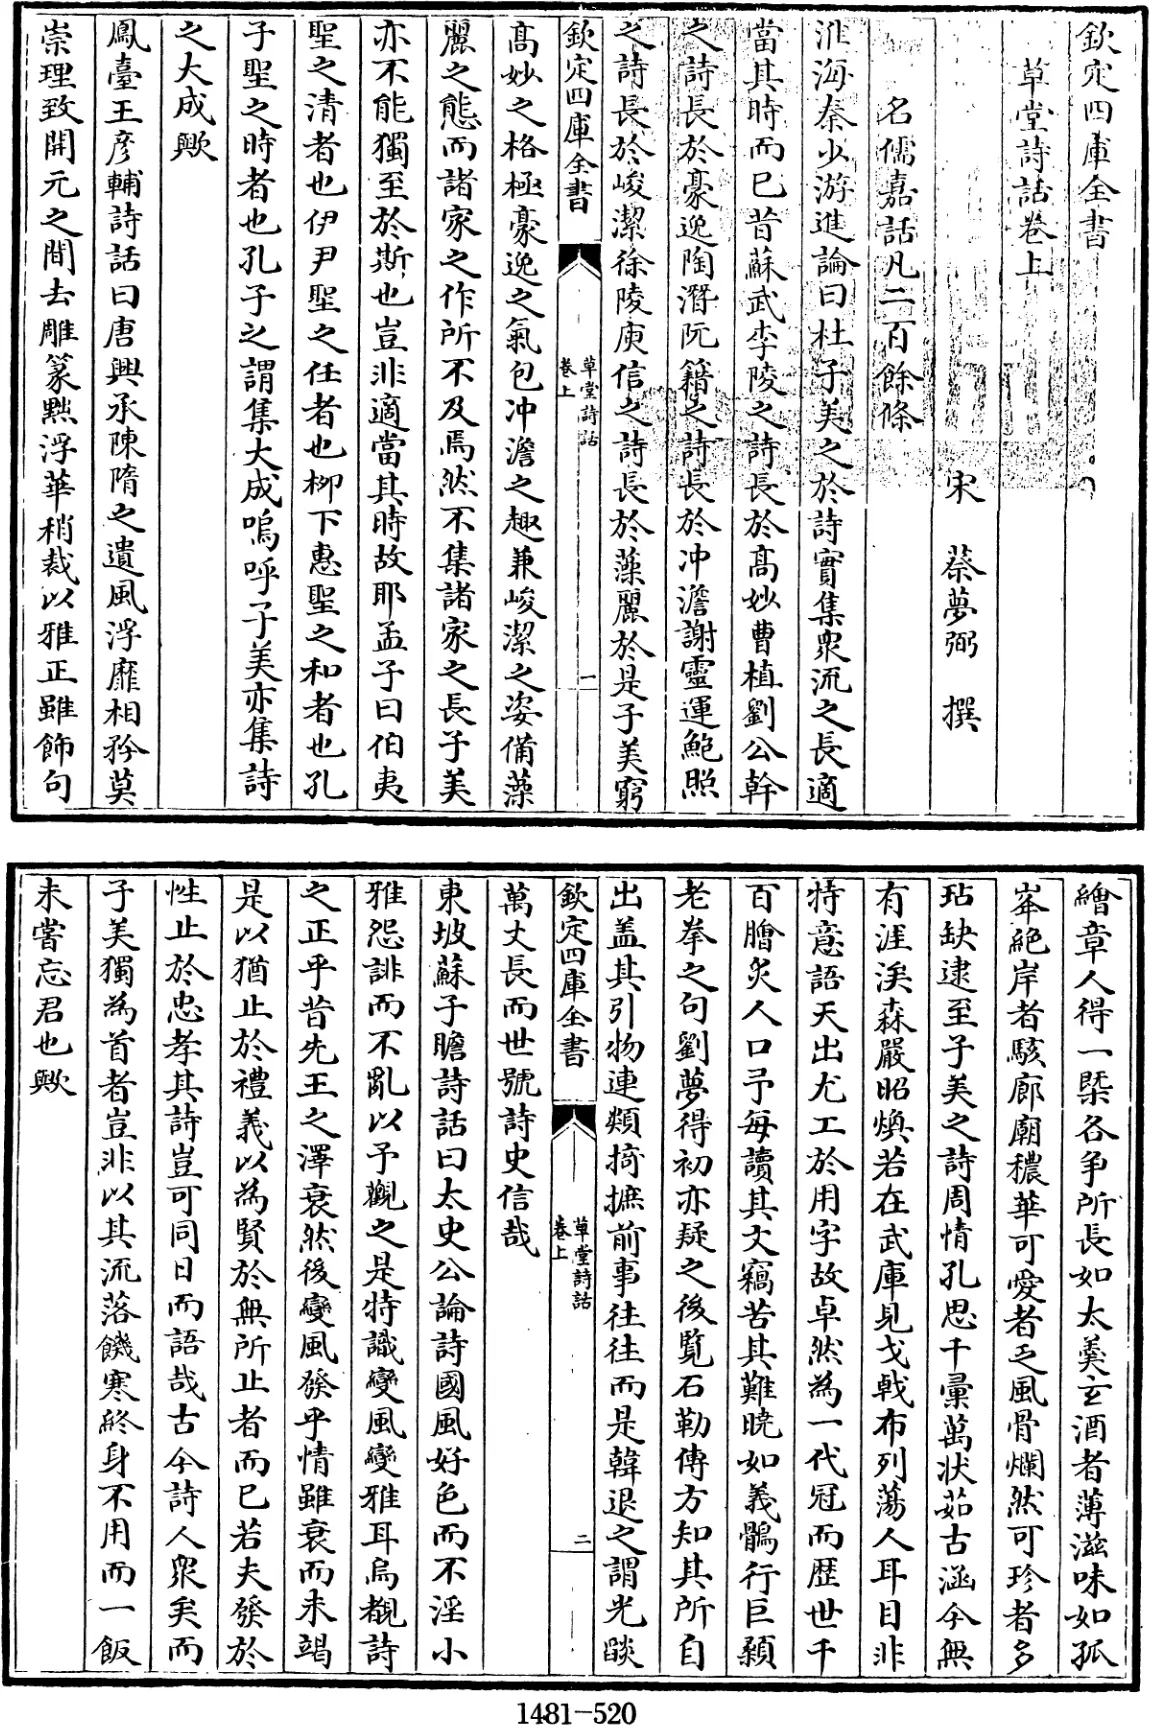 欽定四庫全書
草堂詩話卷上
宋 蔡夢弼 撰
名儒嘉話凡二百餘條
淮海秦少游進論曰杜子美之於詩實集衆流之長適
當其時而已昔蘇武李陵之詩長於高妙曹植劉公幹
之詩長於豪逸陶潛阮籍之詩長於冲澹謝靈運鮑照
之詩長於峻潔徐陵庾信之詩長於藻麗於是子美窮
欽定四庫全書
草堂詩話
卷上
一
高妙之格極豪逸之氣包冲澹之趣兼峻潔之姿備藻
麗之態而諸家之作所不及焉然不集諸家之長子美
亦不能獨至於斯也豈非適當其時故耶孟子曰伯夷
聖之清者也伊尹聖之任者也柳下惠聖之和者也孔
子聖之時者也孔子之謂集大成嗚呼子美亦集詩
之大成歟
鳳臺王彦輔詩話曰唐興承陳隋之遺風浮靡相矜莫
崇理致開元之間去雕篆黜浮華稍裁以雅正雖飾句
繪章人得一槩各争所長如太羹玄酒者薄滋味如孤
峯絶岸者駭廊廟穠華可愛者乏風骨爛然可珍者多
玷缺逮至子美之詩周情孔思千彙萬狀茹古涵今無
有涯涘森嚴昭煥若在武庫見戈戟布列蕩人耳目非
特意語天出尤工於用字故卓然為一代冠而歴世千
百膾炙人口予每讀其文竊苦其難曉如義鶻行巨顙
老拳之句劉夢得初亦疑之後覽石勒傳方知其所自
出盖其引物連類掎摭前事往往而是韓退之謂光燄
欽定四庫全書
草堂詩話
卷上
二
萬丈長而世號詩史信哉
東坡蘇子瞻詩話曰太史公論詩國風好色而不淫小
雅怨誹而不亂以予觀之是特識變風變雅耳烏覩詩
之正乎昔先王之澤衰然後變風發乎情雖衰而未竭
是以猶止於禮義以為賢於無所止者而已若夫發於
性止於忠孝其詩豈可同日而語哉古今詩人衆矣而
子美獨為首者豈非以其流落饑寒終身不用而一飯
未嘗忘君也歟
1481-520